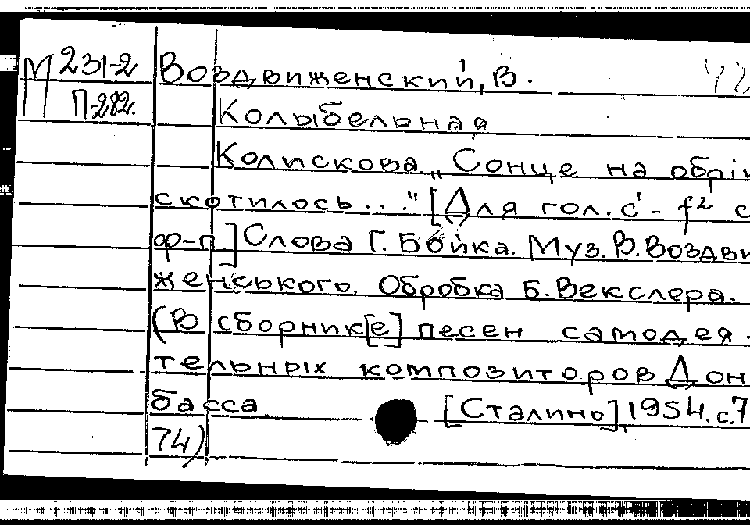 М 231-2 Воздвиженский, В. 42
П-282. Колыбельная
Колискова „Сонце на обрій
скотилось..." [Для гол. c¹ - f² с
ф-п] Слова Г. Бойка. Муз. В. Воздви
женського. Обробка Б. Векслера.
(В сборник[е] песен самодея-
тельных композиторов Дон
басса [Сталино], 1954. с. 7
74)